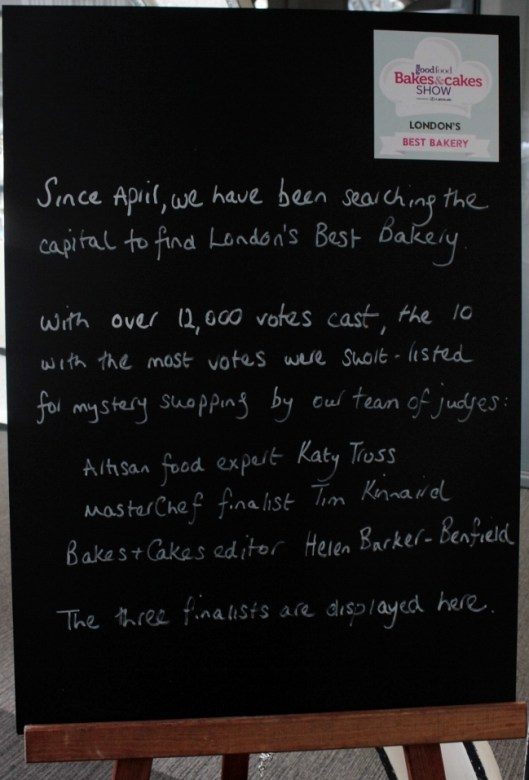 goodfood
Bakes&cakes
SHOW
LONDON'S
BEST BAKERY
Since April, we have been searching the
capital to find London's Best Bakery.
With over 12,000 votes cast, the 10
with the most votes were short-listed
for mystery shopping by our team of judges:
Artisan food expert Katy Truss
MasterChef finalist Tim Kinnaird
Bakes+Cakes editor Helen Barker-Benfield
The three finalists are displayed here.